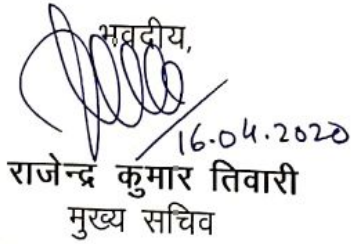 भवदीय,
16.04.2020
राजेन्द्र कुमार तिवारी
मुख्य सचिव